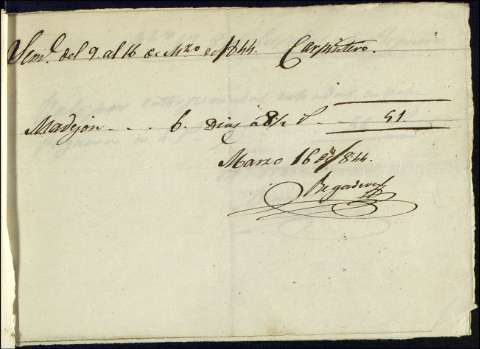 Sem.ª del 9 al 16 de M.zo de 1844. Carpintero.
Madejon . . . . 6. dias a 8½ r.s 51
Marzo 16 de 1844.